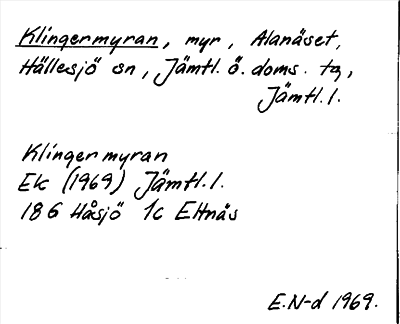 Klingermyran, myr, Alanäset,
Hällesjö sn, Jämtl. ö. doms. tg,
Jämtl. l.
Klingermyran
Ek (1969) Jämtl. l.
18G Håsjö 1c Ettnås
E.N-d 1969.